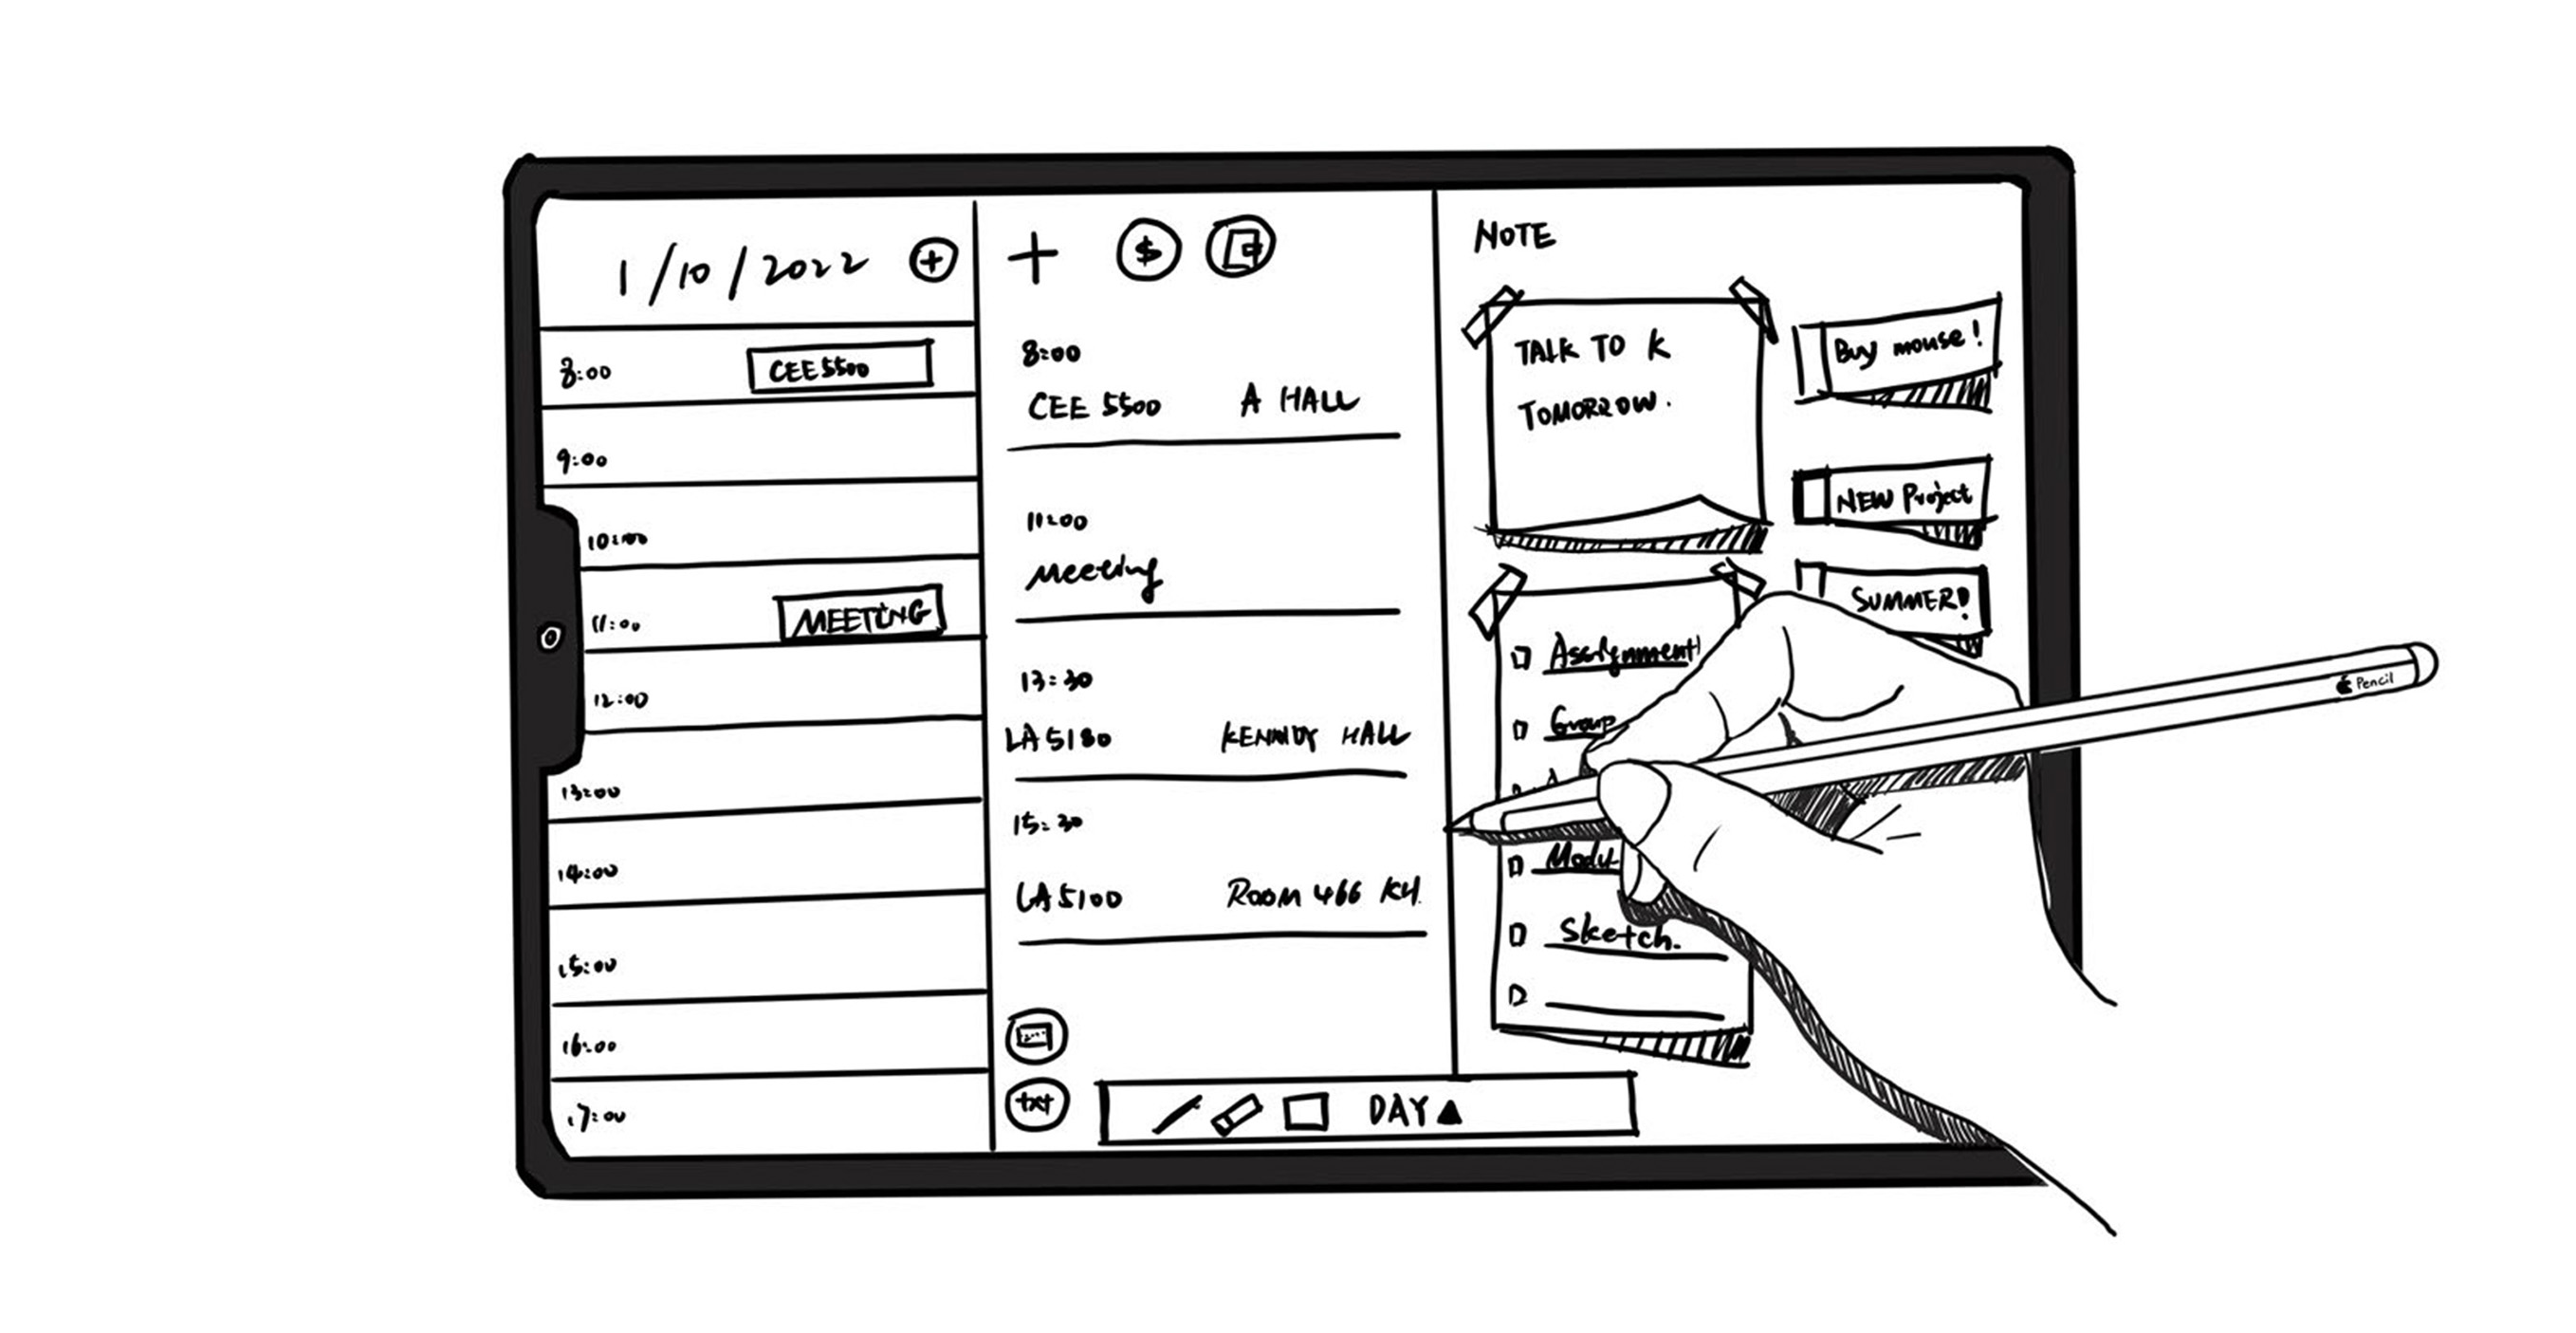 1/10/2022
8:00 CEE 5500
9:00
10:00
11:00 MEETING
12:00
13:00
14:00
15:00
16:00
17:00
$
8:00
CEE 5500 A HALL
11:00
Meeting
13:30
LA 5180 KENNDY HALL
15:30
LA 5100 ROOM 466 KH.
txt
DAY
NOTE
TALK TO K
TOMORROW.
Buy mouse!
NEW Project
SUMMER!
Assignment
Group
Sketch.
Pencil